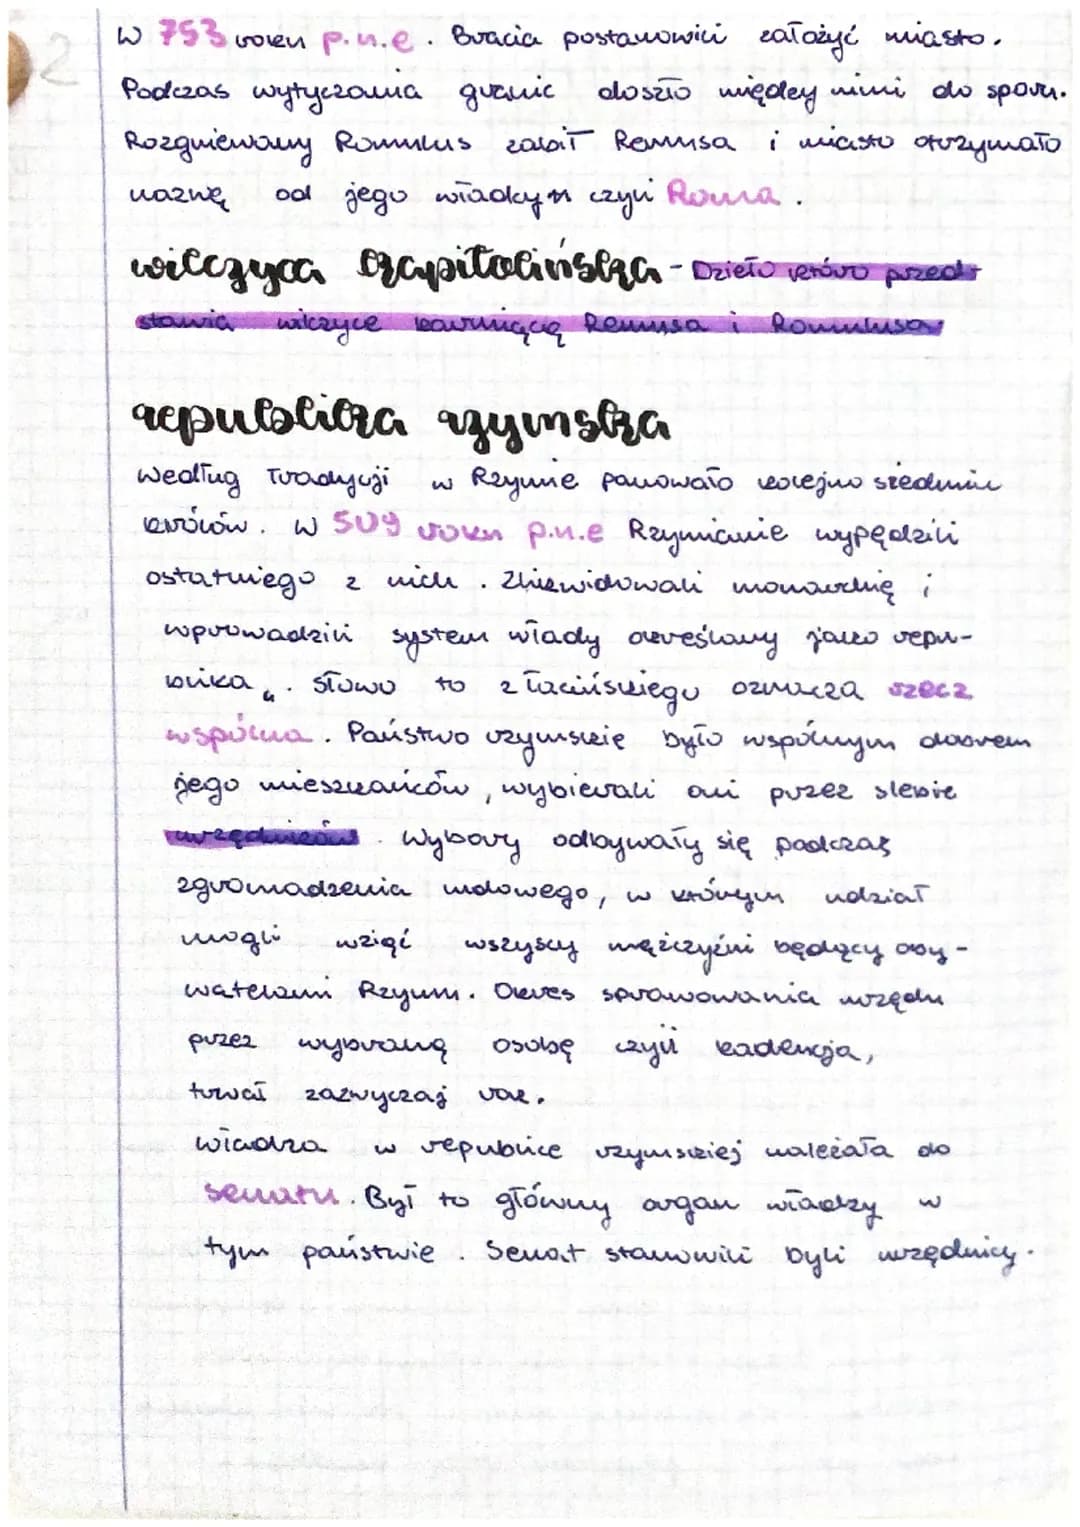 2
W 753 roku p.n.e. Bracia postanowili założyć miasto.
Podczas wytyczania granic doszło między nimi do sporu.
Rozgniewany Romulus zabił Remusa i miasto otrzymało
nazwę od jego władcy czyli Roma.
wilczyca kapitolińska - Dzieło które przed-
stawia wilczyce karmiącą Remusa i Romulusa
republika rzymska
Według Tradycji w Rzymie panowało kolejno siedmiu
królów. W 509 roku p.n.e Rzymianie wypędzili
ostatniego z nich. Zlikwidowali monarchię i
wprowadzili system włady określany jako repu-
blika". Słowo to z łacińskiego oznacza rzecz
wspólna. Państwo rzymskie było wspólnym dobrem
jego mieszkańców, wybierali oni przez siebie
urzędników. Wybory odbywały się podczas
zgromadzenia ludowego, w którym udział
mogli wziąć wszyscy mężczyźni będący oby-
watelami Rzymu. Okres sprawowania urzędu
przez wybraną osobę czyli kadencja,
trwał zazwyczaj rok.
Władza w republice rzymskiej należała do
senatu. Był to główny organ władzy w
tym państwie. Senat stanowili byli urzędnicy.